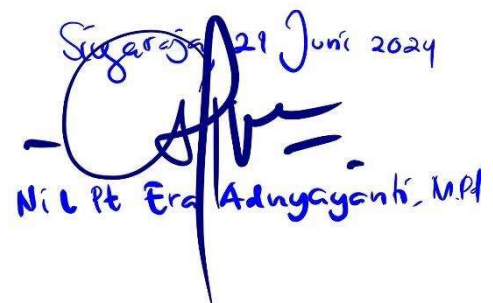 Singaraja, 29 Juni 2024
Ni L Pt Era Adnyayanti, M.Pd